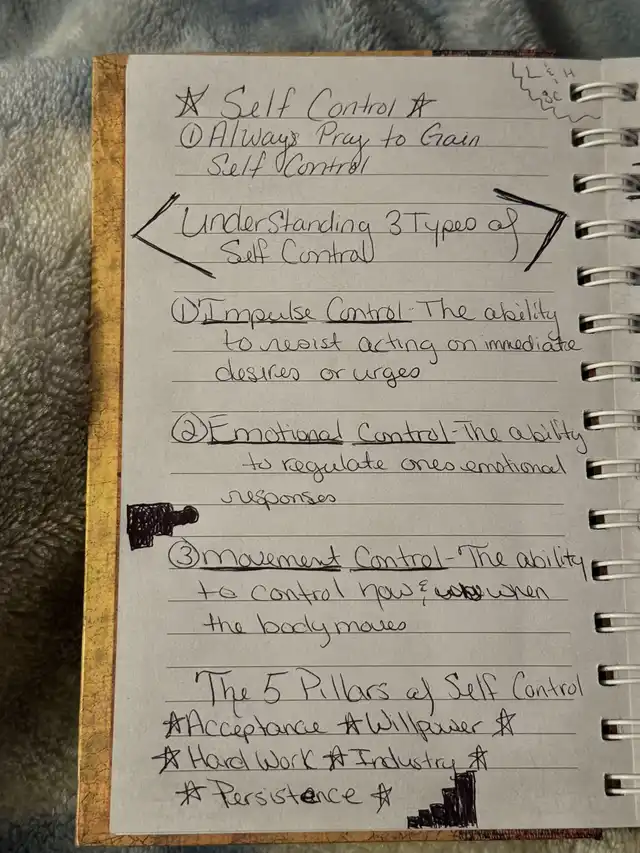 LL & H
SC
☆ Self Control ☆
① Always Pray to Gain
Self Control
< Understanding 3 Types of >
Self Control
① Impulse Control - The ability
to resist acting on immediate
desires or urges
② Emotional Control - The ability
to regulate ones emotional
responses
③ movement Control - The ability
to control how & when
the body moves
The 5 Pillars of Self Control
☆ Acceptance ☆ Willpower ☆
☆ Hard Work ☆ Industry ☆
☆ Persistence ☆